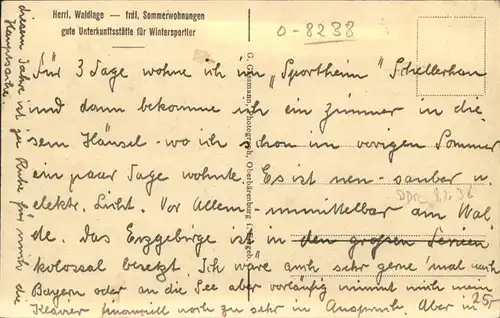 Herrl. Waldlage — frdl. Sommerwohnungen
gute Unterkunftsstätte für Wintersportler
0-8238
Für 3 Tage wohne ich im „Sportheim" Schellerhau
und dann bekomme ich ein Zimmer in die-
sem Häusel - wo ich schon im vorigen Sommer
ein paar Tage wohnte. Es ist neu - sauber u.
elektr. Licht. Vor Allem - unmittelbar am Wal-
de. Das Erzgebirge ist in den großen Ferien
kolossal besetzt. Ich wäre auch sehr gerne 'mal nach
Bayern oder an die See aber vorläufig nimmt mich mein
Klavier finanziell noch zu sehr in Anspruch. Aber in
diesem Jahre ist ja Ruhe für mich die
Hauptsache.
G. Photograph, Oberbärenburg i. Erzgeb.
25,-